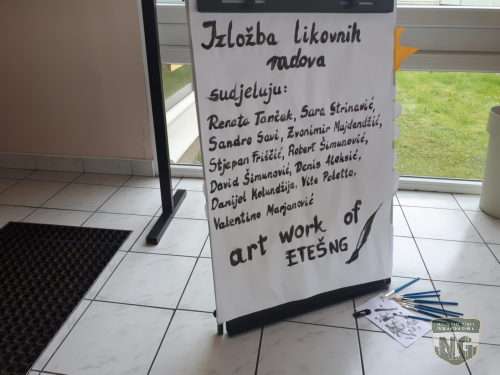 Izložba likovnih
radova
sudjeluju:
Renata Tančak, Sara Strinavić,
Sandro Savi, Zvonimir Majdendžić,
Stjepan Friščić, Robert Šimunović,
David Šimunović, Denis Aleksić,
Danijel Kolundžija, Vito Poletto,
Valentino Marjanović
art work of
ETEŠNG
NG